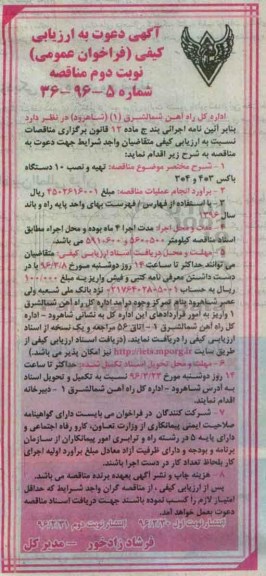 آگهی دعوت به ارزیابی
کیفی (فراخوان عمومی)
نوبت دوم مناقصه
شماره ۵-۹۶-۳۶
اداره کل راه آهن شمالشرق (۱) (شاهرود) در نظر دارد
بنابر آئین نامه اجرائی بند ج ماده ۱۲ قانون برگزاری مناقصات
نسبت به ارزیابی کیفی متقاضیان واجد شرایط جهت دعوت به
مناقصه به شرح زیر اقدام نماید:
۱- شرح مختصر موضوع مناقصه: تهیه و نصب ۱۰ دستگاه
باکس ۳در۲ و ۴در۳
۲- برآورد انجام عملیات مناقصه: مبلغ ریال
۳- با استفاده از فهارس / فهرست بهای واحد پایه راه و باند
سال ۱۳۹۶
۴- مدت و محل اجرا: مدت اجرا ۴ ماه بوده و محل اجراء مطابق
اسناد مناقصه کیلومتر ۵۶۰+۵۰۰ و ۵۹۱+۶۰۰ می باشد.
۵- مهلت و محل دریافت اسناد ارزیابی کیفی: متقاضیان
می توانند حداکثر تا ساعت ۱۴ روز دوشنبه مورخ ۹۶/۳/۸ با در
دست داشتن معرفی نامه کتبی و فیش واریز به مبلغ ۱۰۰/۰۰۰
ریال به حساب نزد بانک ملی شعبه ولی
عصر شاهرود بنام تمرکز وجوه درآمد اداره کل راه آهن شمالشرق
۱ واریز به امور قراردادهای این اداره کل به نشانی شاهرود - اداره
کل راه آهن شمالشرق ۱ - اتاق ۵۶ مراجعه و یک نسخه از اسناد
ارزیابی کیفی را دریافت نمایند. (دریافت اسناد ارزیابی کیفی از
طریق سایت http://iets.mporg.ir نیز امکان پذیر می باشد.)
۶- مهلت و محل تحویل اسناد تکمیل شده: حداکثر تا ساعت
۱۴ روز دوشنبه مورخ ۹۶/۳/۲۲ نسبت به تکمیل و تحویل اسناد
به آدرس شاهرود - اداره کل راه آهن شمالشرق ۱ - دبیرخانه
اقدام نمایند.
۷- شرکت کنندگان در فراخوان می بایست دارای گواهینامه
صلاحیت ایمنی پیمانکاری از وزارت تعاون، کار و رفاه اجتماعی و
دارای پایه ۵ در رشته راه و ترابری امور پیمانکاران از سازمان
برنامه و بودجه و دارای ظرفیت آزاد معادل مبلغ برآورد اولیه اجرای
کار بلحاظ تعداد کار در دست اجرا باشند.
هزینه چاپ و نشر آگهی بعهده برنده مناقصه می باشد.
پس از ارزیابی کیفی، از مناقصه گران واجد شرایط که حداقل
امتیاز لازم را کسب نموده باشند جهت دریافت اسناد مناقصه
دعوت بعمل خواهد آمد.
انتشار نوبت اول ۹۶/۲/۳۰ انتشار نوبت دوم ۹۶/۲/۳۱
فرشاد زادخور - مدیر کل